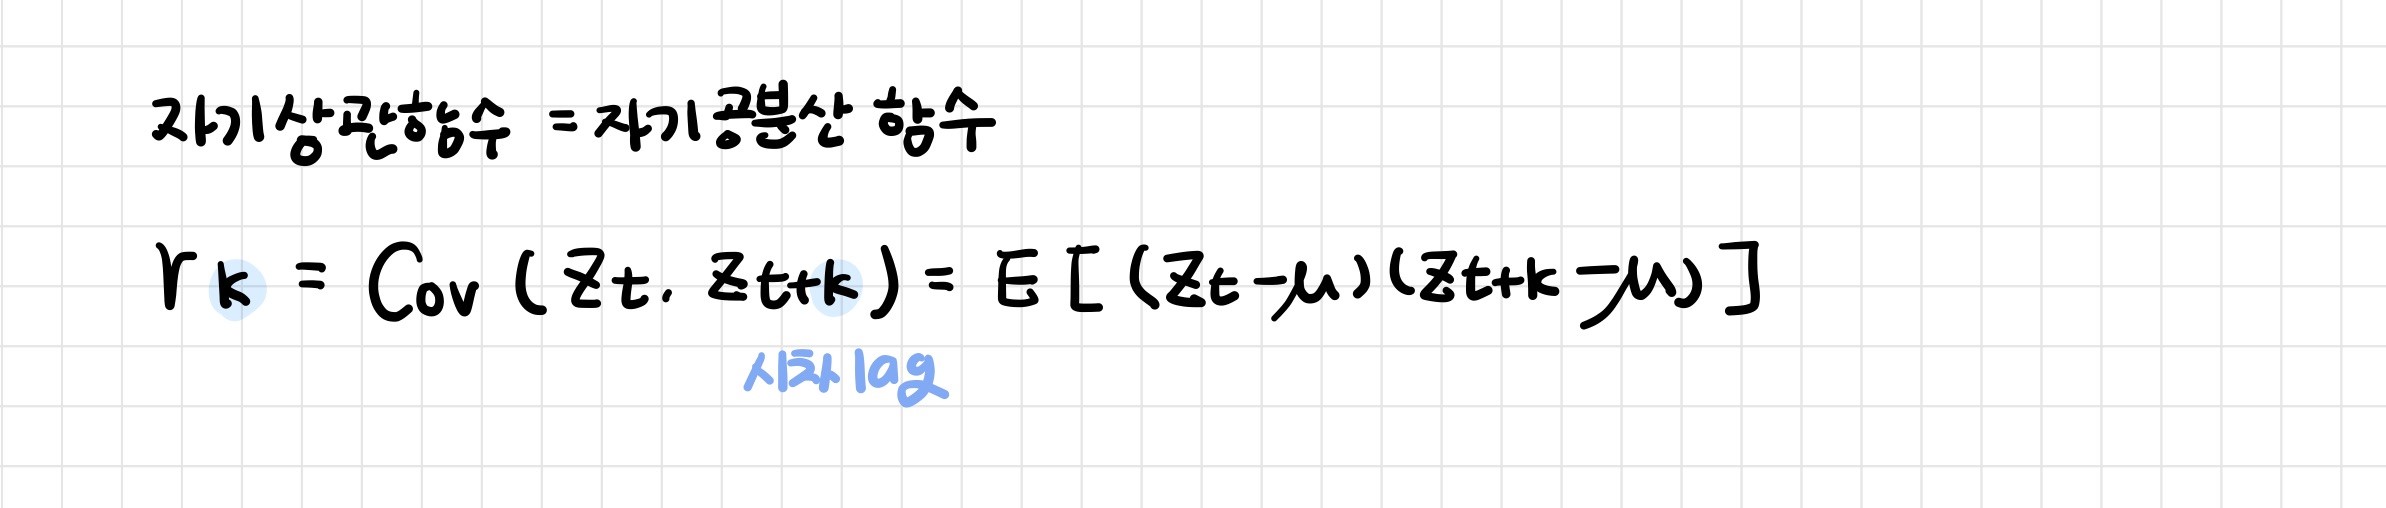 자기상관함수 = 자기공분산 함수
γk = Cov (Zt, Zt+k) = E[(Zt-μ)(Zt+k-μ)]
시차 lag